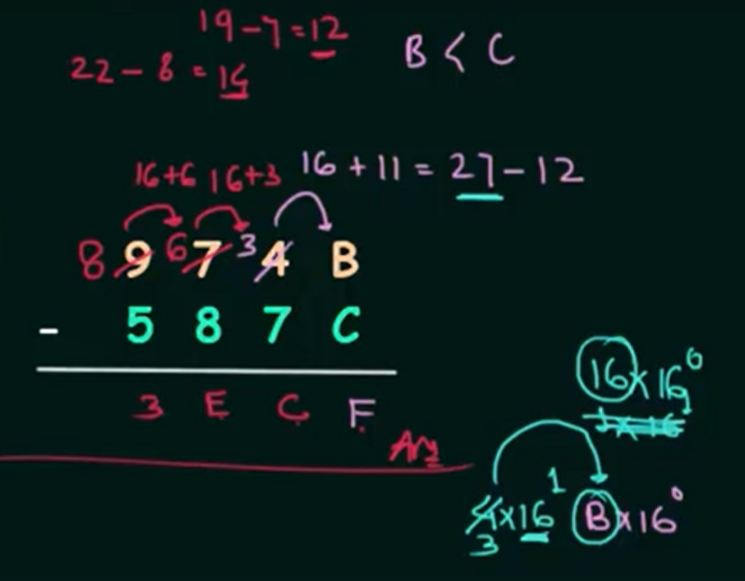 19-7=12
22-8=14
B < C
16+6 16+3 16+11=27-12
8 9 6 7 3 4 B
- 5 8 7 C
3 E C F
Ans
16×16⁰
1×16¹
4×16¹ B×16⁰
3